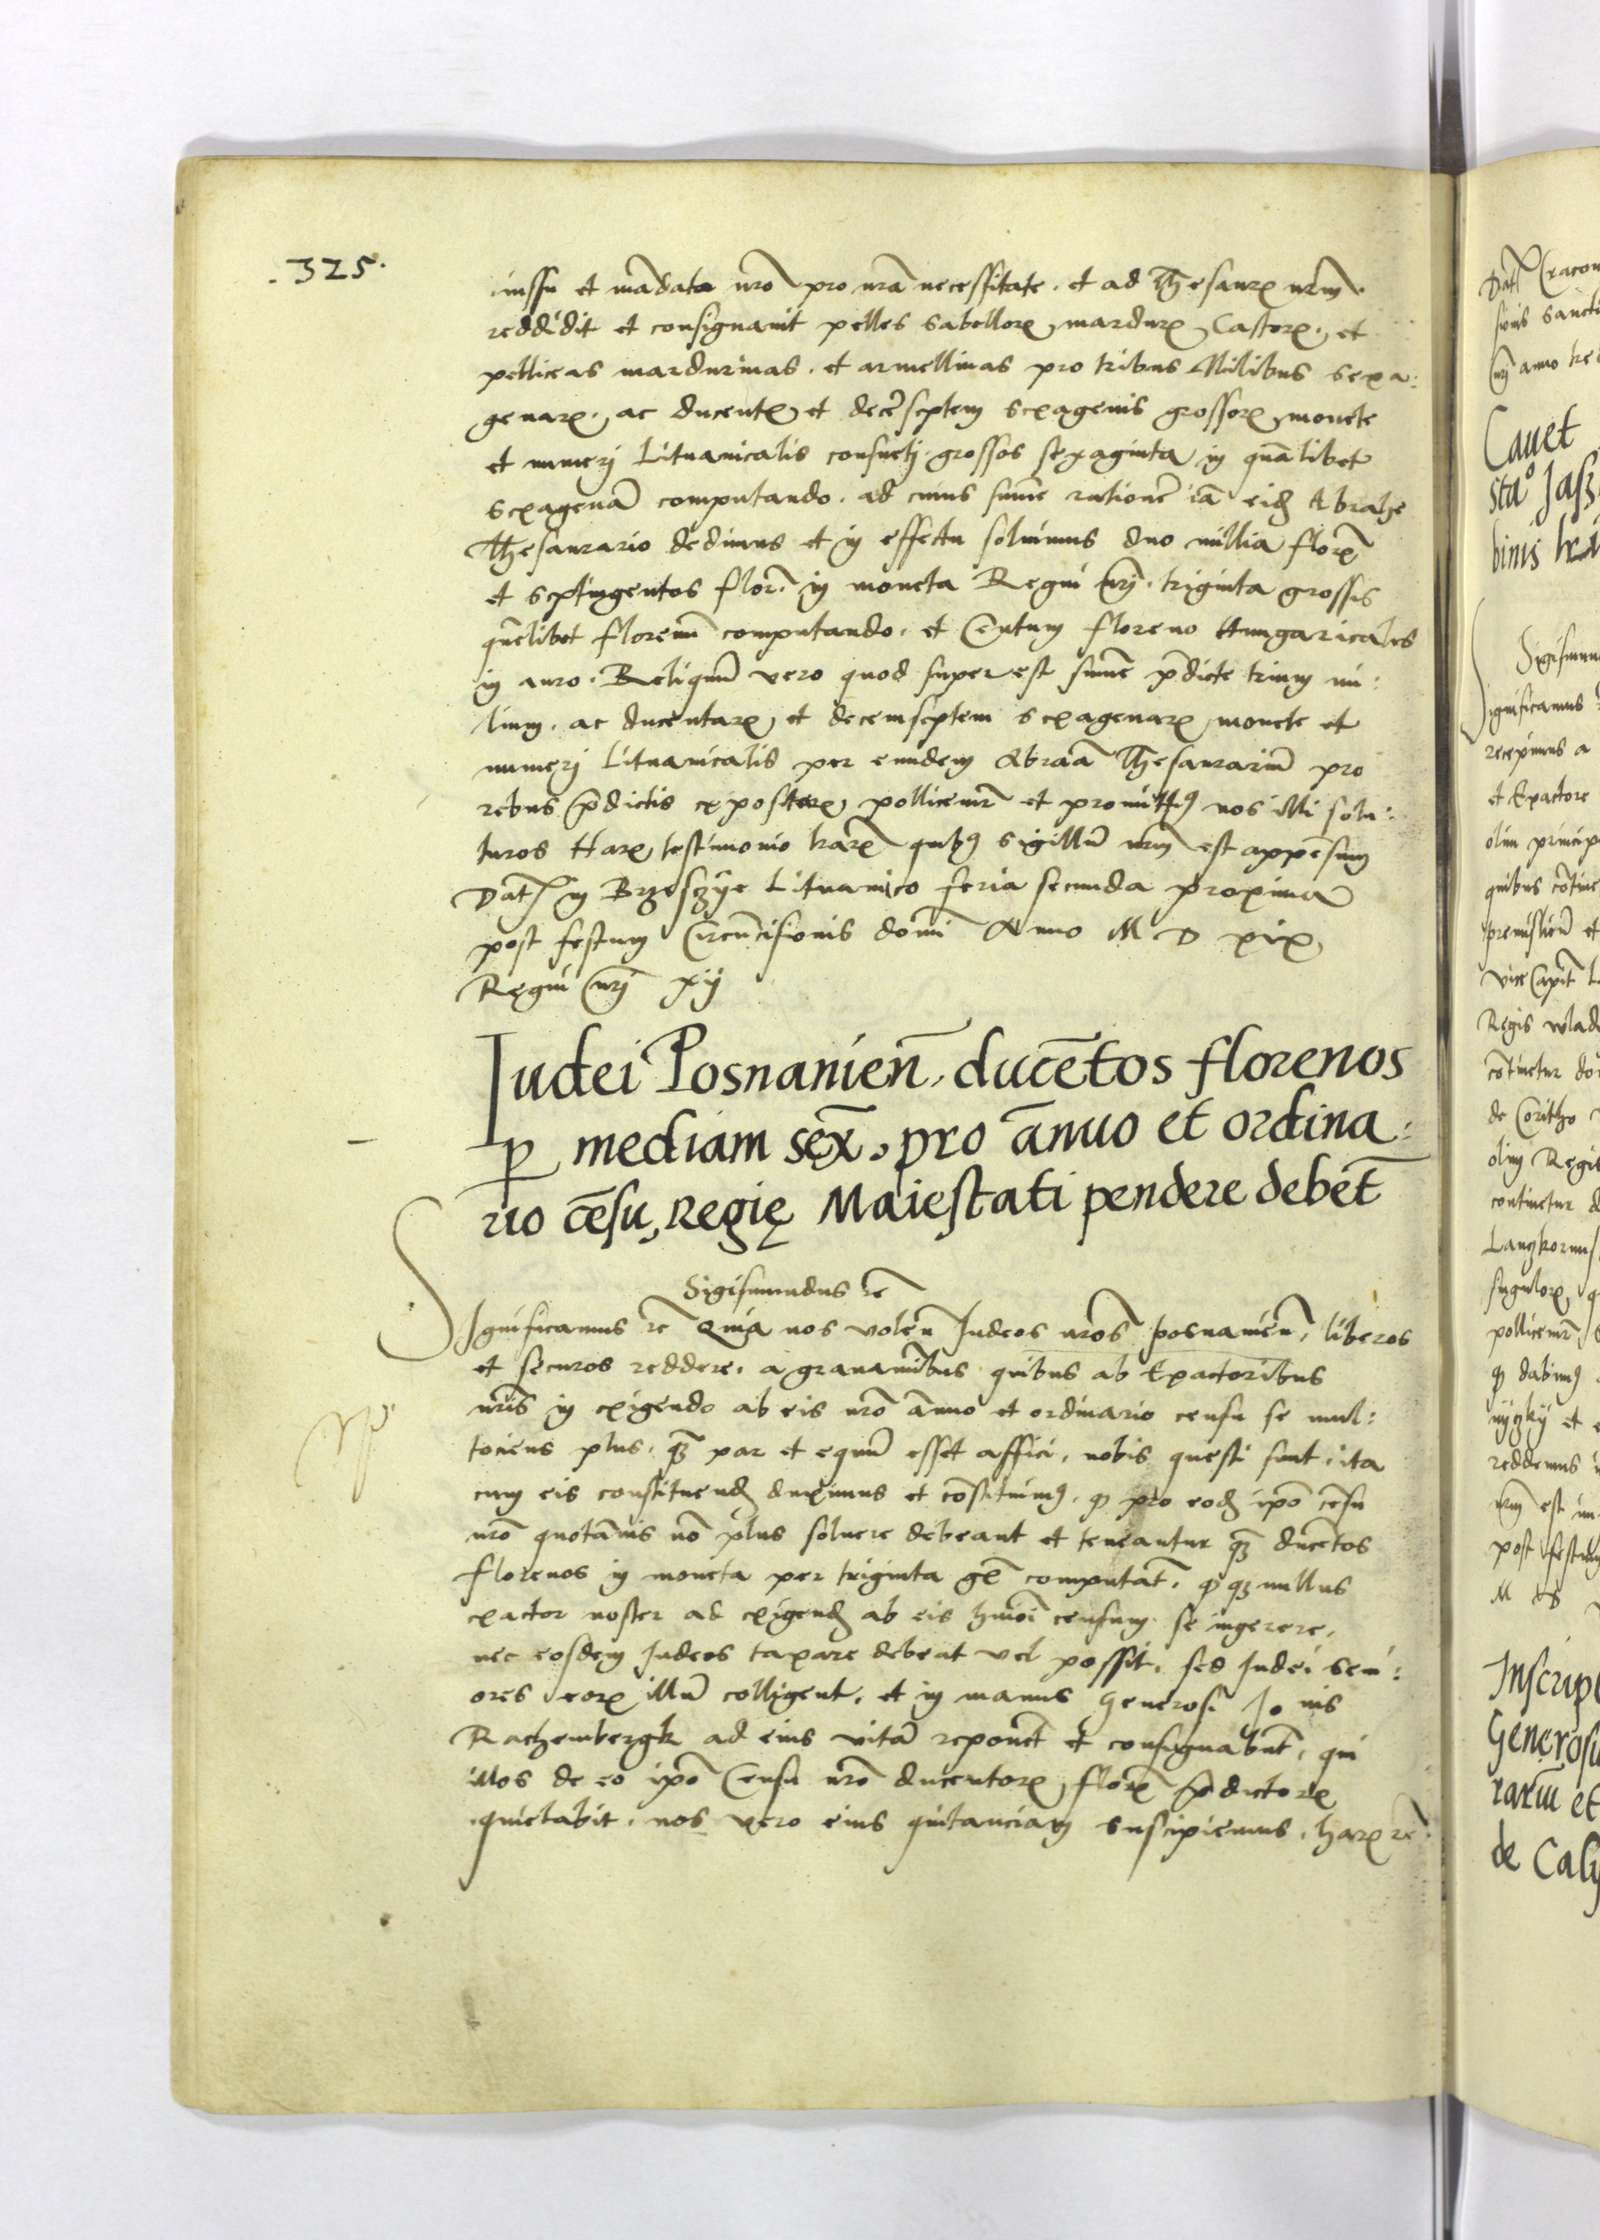 .325.
iussu et mādato nr̄o pro nr̄a necessitate. et ad Thesaurꝝ nr̄m.
reddidit et consignauit pelles sabellorꝝ, mardurꝝ, Castorꝝ, et
pelliceas mardurinas. et armellinas pro tribus Milibus sexa:
genarꝝ. ac ducentꝭ et decēseptem sexagenis grossorꝝ monete
et numerj Lituanicalis consuetj. grossos sexaginta in quālibet
sexagenā computando. ad cuius sūme rationē iā eidē Abrahe
Thesaurario dedimus et in effectu soluimus duo millia florꝫ
et septingentos flor̄. in moneta Regni nr̄j. triginta grossis
quēlibet florenū computando. et Centum floreno Hungaricales
in auro. Reliquū vero quod superest sūme p̄dicte trium mi:
lium. ac ducentarꝝ, et decemseptem sexagenarꝝ monete et
numerj Lituanicalis per eundem Abraā Thesaurariū pro
rebus p̄dictis expositarꝝ, pollicemr̄ et promittimꝰ nos illi solu:
turos Harꝝ testimonio lrarꝫ quibꝰ sigillū nr̄m est appensum
Datꝭ in Brzesczye Lituanico feria secunda proxima
post festum Circūcisionis domī Anno M D xix,
Regni nr̄j xij
Iudei Posnanien̄, ducētos florenos
ꝑ mediam sex̄. pro ānuo et ordina:
rio cēsu, Regię Maiestati pendere debēt
Sigismundus rc̄
Significamus rc̄ Quia nos volen̄ Iudeos nr̄os posnanien̄, liberos
et securos reddere. a grauamībus quibus ab Exactoribus
nr̄is in exigendo ab eis nr̄o ānuo et ordinario censu se mul:
tociens plus. q̄ꝫ par et equū esset affici, nobis questi sunt, ita
cum eis constituendꝫ duximus et cōstituimꝰ. ꝙ pro eodꝫ ip̄o cēsu
nr̄o quotānis nō plus soluere debeant et teneantur q̄ꝫ ducētos
florenos in moneta per triginta gr̄ computat̄. ꝙ qꝫ nullus
exactor noster ad exigendꝫ ab eis hmōi censum se ingerere,
nec eosdem Iudeos taxare debeat vel possit. sed Iudei seni:
ores eorꝝ illū colligent, et in manus Generosi Jo nis
Rachembergk ad eius vitā reponēt et consignabūt, qui
illos de eo ip̄o Censu nr̄o ducentorꝝ, florꝫ p̄dictorꝝ
quietabit. nos vero eius quitanciam suscipiemus. harꝝ rc̄.
Datꝭ Cracou
sionis Sancti
nr̄j anno
Cauet
sta° Jasz
binis
Sigismun
Significamus
recepimus a
et Exactore
olim princip
quibus cōtine
premisliēn et
vice Capit̄
Regis wlad
cōtinetur do
de Coritho
olim Regis
continetur d
Lanczkoruns
singulorꝝ, q
pollicemr̄,
ꝙ dabimꝰ
nijczkij et e
reddemus
nr̄m est
post festum
M D
Inscript
Generosu
rariū et
de Caly